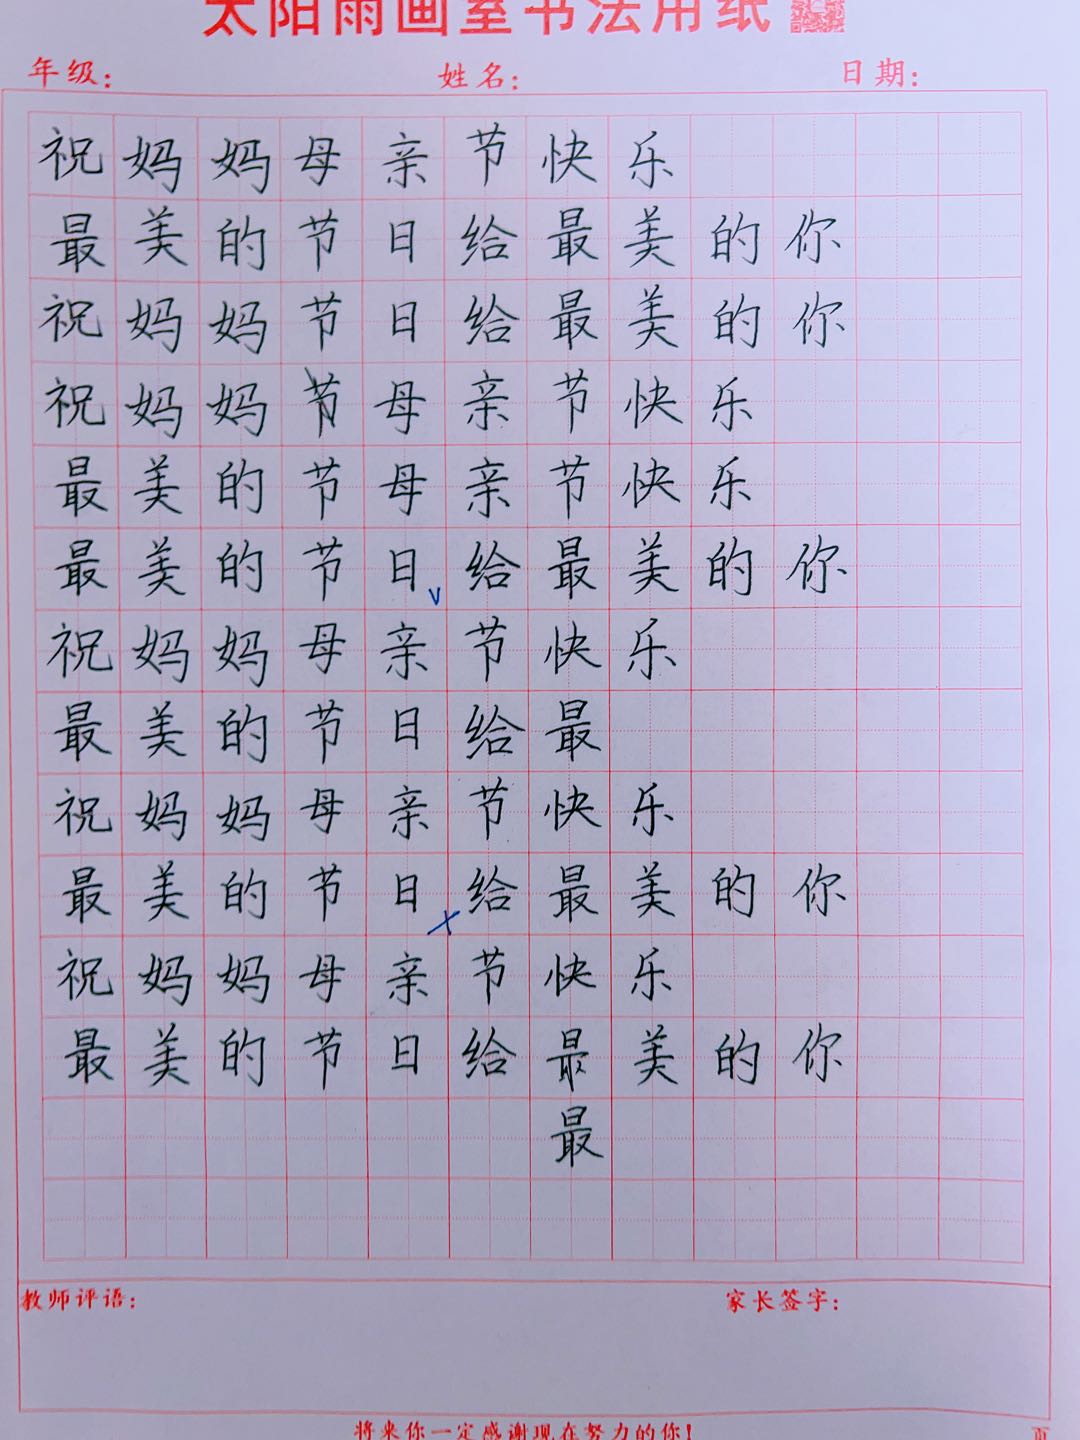 太阳雨画室书法用纸
年级： 姓名： 日期：
祝妈妈母亲节快乐
最美的节日给最美的你
祝妈妈节日给最美的你
祝妈妈节母亲节快乐
最美的节母亲节快乐
最美的节日给最美的你
祝妈妈母亲节快乐
最美的节日给最
祝妈妈母亲节快乐
最美的节日给最美的你
祝妈妈母亲节快乐
最美的节日给最美的你
最
教师评语： 家长签字：
将来你一定感谢现在努力的你！ 页